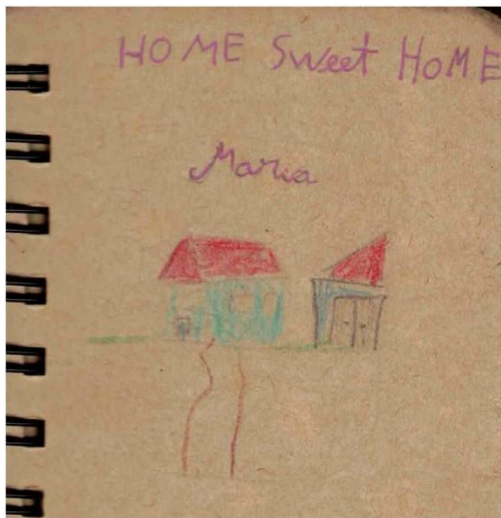 HOME Sweet HOME
Maria